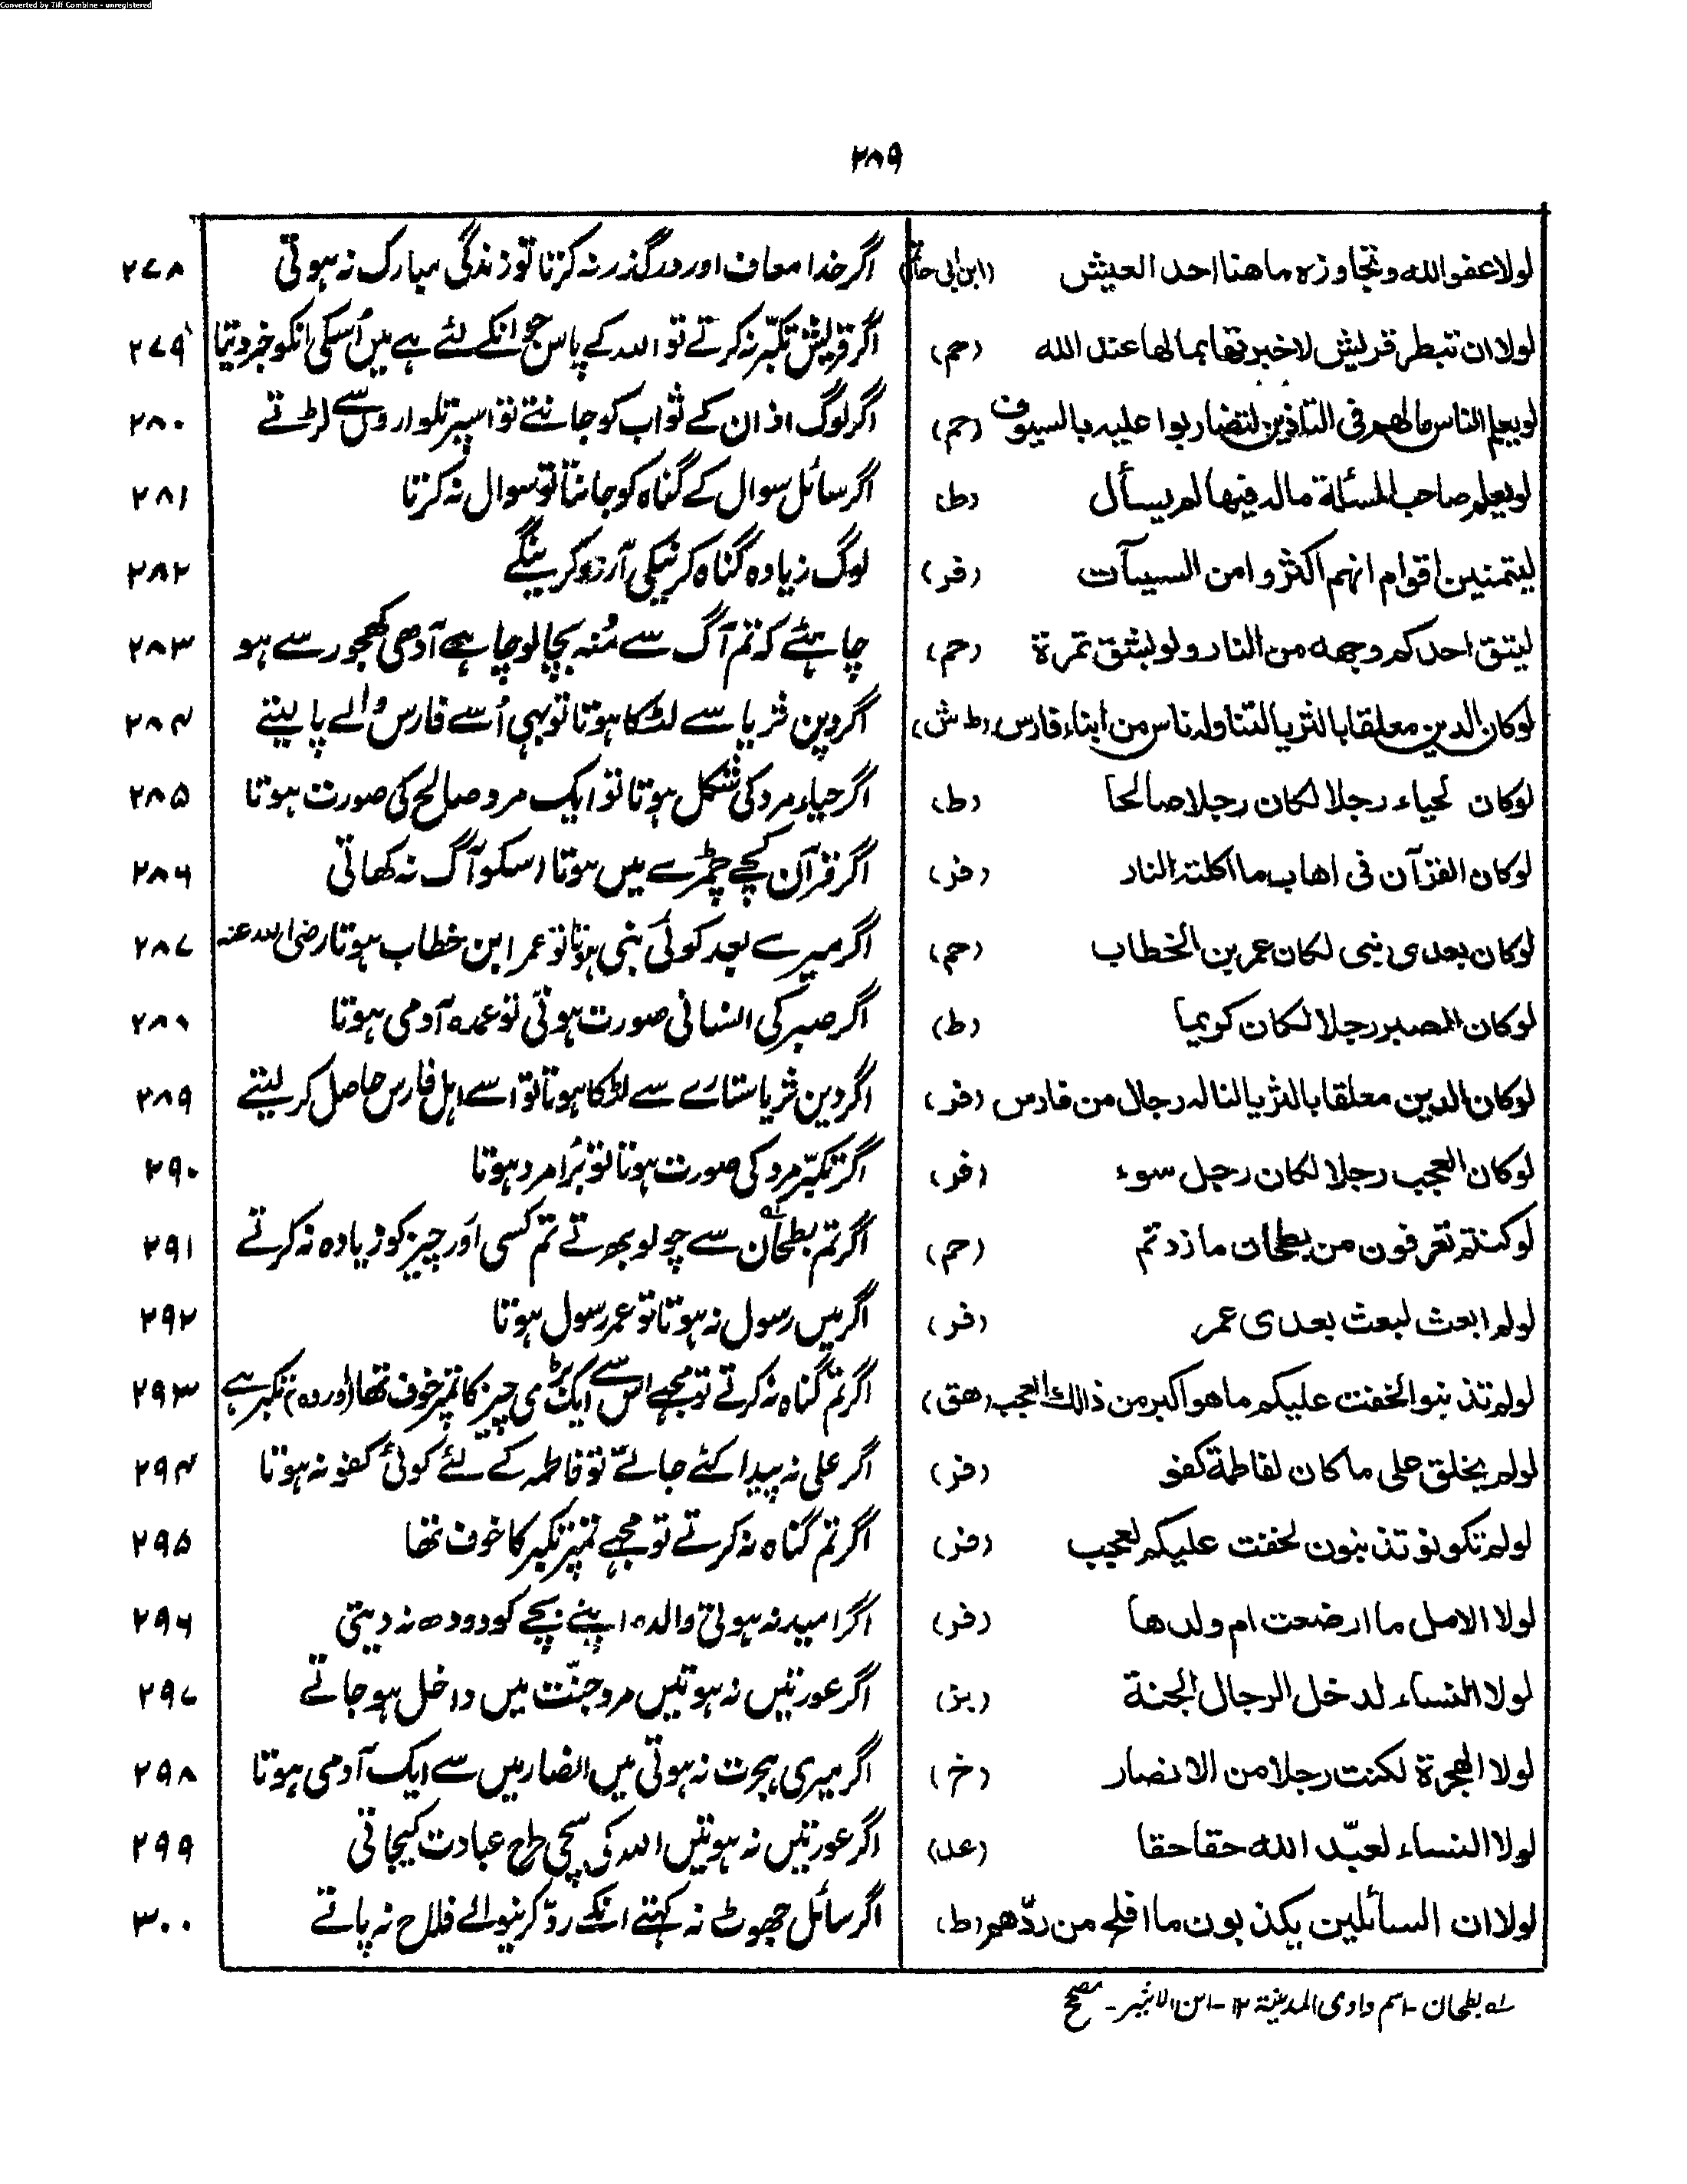 Converted by Tiff Combine - unregistered
۲۸۹
لولا عفو الله وتجاوزه ما هنا احد العيش (ابن ابی حاتم) اگر خدا معاف اور درگذر نہ کرتا تو زندگی مبارک نہ ہوتی ۲۷۸
لولا ان تبطر قريش لاخبرتها بما لها عند الله (حم) اگر قریش تکبّر نہ کرتے تو اللہ کے پاس جو انکے لئے ہے میں اُسکی انکو خبر دیتا ۲۷۹
لو يعلم الناس ما لهم فى التاذين لتضاربوا عليه بالسيوف (حم) اگر لوگ اذان کے ثواب کو جانتے تو اسپر تلواروں سے لڑتے ۲۸۰
لو يعلم صاحب المسئلة ما له فيها لم يسأل (ط) اگر سائل سوال کے گناہ کو جانتا تو سوال نہ کرتا ۲۸۱
ليتمنين اقوام انهم اكثروا من السيآت (فر) لوگ زیادہ گناہ کرنیکی آرزو کرینگے ۲۸۲
ليتق احدكم وجهه من النار ولو بشق تمرة (حم) چاہئے کہ تم آگ سے مُنہ بچا لو چاہے آدھی کھجور سے ہو ۲۸۳
لوكان الدين معلقا بالثريا لتناوله ناس من أبناء فارس (ط ش) اگر دین ثریا سے لٹکا ہوتا تو بہی اُسے فارس والے پا لیتے ۲۸۴
لوكان لحياء رجلا لكان رجلا صالحا (ط) اگر حیاء مرد کی شکل ہوتا تو ایک مرد صالح کی صورت ہوتا ۲۸۵
لوكان القرآن فى اهاب ما اكلته النار (فر) اگر قرآن کچے چمڑے میں ہوتا اسکو آگ نہ کھاتی ۲۸۶
لوكان بعدى نبى لكان عمر بن الخطاب (حم) اگر میرے بعد کوئی نبی ہوتا تو عمر ابن خطاب ہوتا رضی اللہ عنہ ۲۸۷
لوكان الصبر رجلا لكان كريما (ط) اگر صبر کی انسانی صورت ہوتی تو عمدہ آدمی ہوتا ۲۸۸
لوكان الدين معلقا بالثريا لناله رجال من فارس (فر) اگر دین ثریا ستارے سے لٹکا ہوتا تو اسے اہل فارس حاصل کر لیتے ۲۸۹
لوكان العجب رجلا لكان رجل سوء (فر) اگر تکبّر مرد کی صورت ہوتا تو بُرا مرد ہوتا ۲۹۰
لوكنتم تغرفون من بطحان ما زدتم (حم) اگر تم بطحان سے چولو بھرتے تم کسی اَور چیز کو زیادہ نہ کرتے ۲۹۱
لو لم ابعث لبعث بعدى عمر (فر) اگر میں رسول نہ ہوتا تو عمر رسول ہوتا ۲۹۲
لو لم تذنبوا لخفت عليكم ما هو اكبر من ذالك العجب (هق) اگر تم گناہ نہ کرتے تو مجھے اس سے ایک بڑی چیز کا تمپر خوف تھا (اور وہ) تکبر ہے ۲۹۳
لو لم يخلق على ما كان لفاطمة كفو (فر) اگر علی نہ پیدا کئے جاتے تو فاطمہ کے لئے کوئی کفو نہ ہوتا ۲۹۴
لو لم تكونو تذنبون لخفت عليكم لعجب (فر) اگر تم گناہ نہ کرتے تو مجھے تمپر تکبر کا خوف تھا ۲۹۵
لولا الامل ما ارضعت ام ولدها (فر) اگر امید نہ ہوتی والدہ اپنے بچے کو دودھ نہ دیتی ۲۹۶
لولا النساء لدخل الرجال الجنة (بز) اگر عورتیں نہ ہوتیں مرد جنّت میں داخل ہو جاتے ۲۹۷
لولا الهجرة لكنت رجلا من الانصار (خ) اگر میری ہجرت نہ ہوتی میں انصار میں سے ایک آدمی ہوتا ۲۹۸
لولا النساء لعبّد الله حقا حقا (عد) اگر عورتیں نہ ہوتیں اللہ کی سچی طرح عبادت کیجاتی ۲۹۹
لولا ان السائلين يكذبون ما افلح من ردّهم (ط) اگر سائل جھوٹ نہ کہتے انکے ردّ کرنیوالے فلاح نہ پاتے ۳۰۰
لہ بطحان - اسم وادی المدینۃ ۱۲ - ابن الاثیر - مصحح